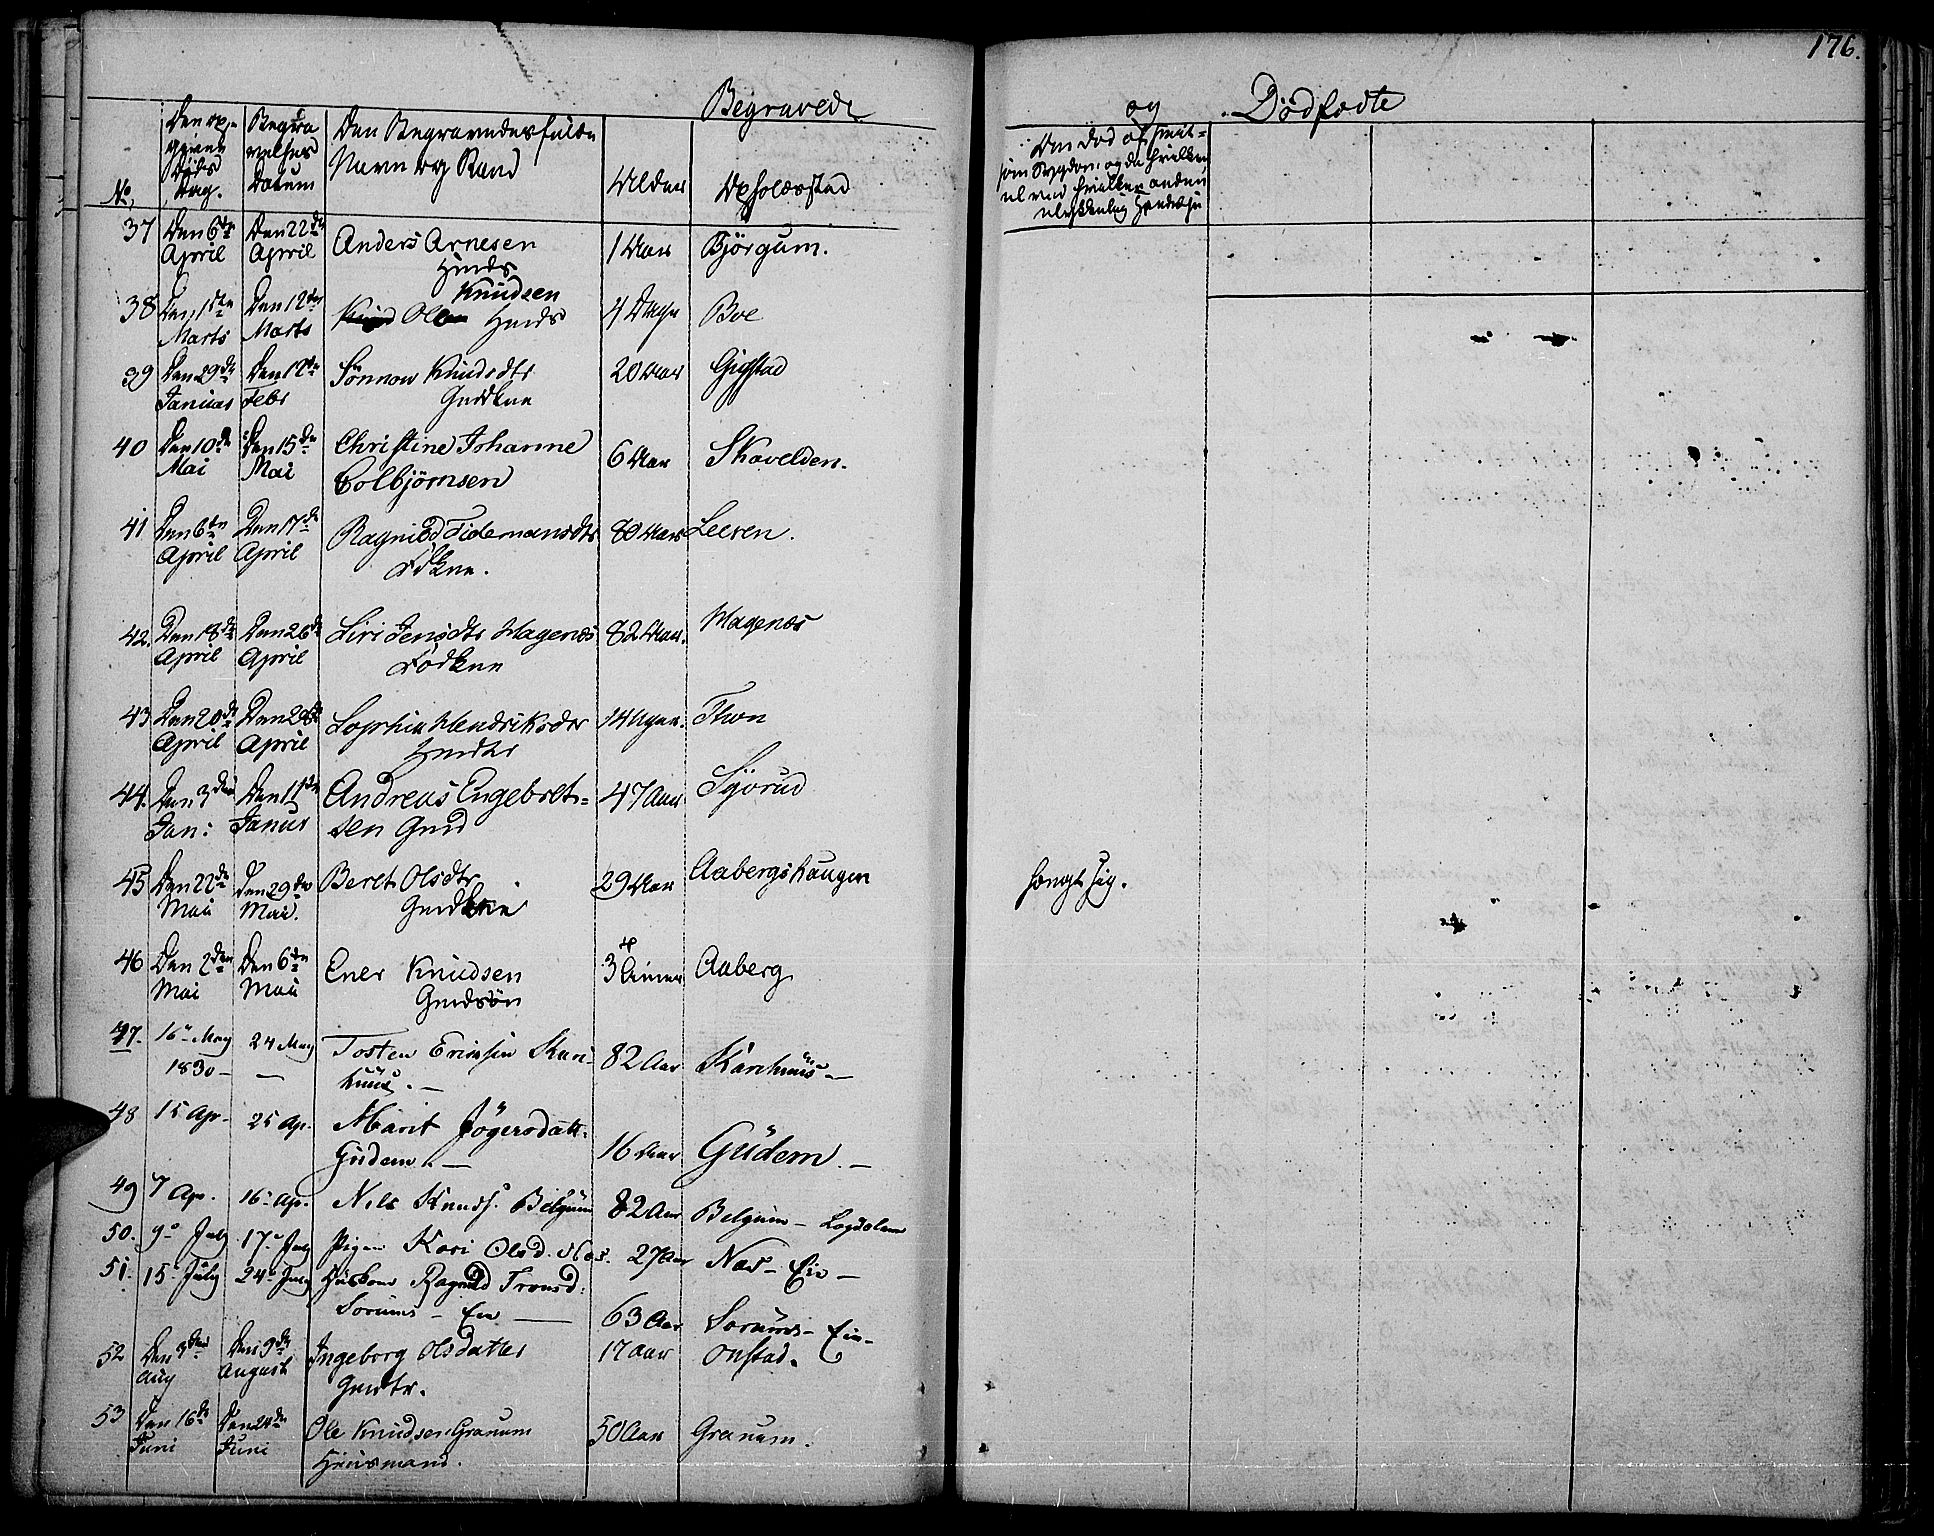 176.
Begravede og Dødfødte
No.
Den op=
givne
Døds
Dag.
Begra
velses
Datum
Den Begravedes fulde
Navn og Stand
Alder
Opholdsstad
Om død af smit=
som Sygdom, og da hvilken,
el ved hvilken anden
ulykkelig Hændelse
37 Den 6te April Den 22de April Anders Arnesen Hmds 1 Aar Bjørgum.
38 Den 1ste Marts Den 12te Marts Ole Knudsen Hmds 4 Dage Boe
39 Den 29de Januar Den Febr Sönnow Knudsdtr Gmdkne 20 Aar Gigstad
40 Den 10de Mai Den 15de Mai Christine Johanne Colbjørnsen 6 Aar Skovelden.
41 Den 6te April Den 17de April Ragnild Tidemansdtr Fdkne. 80 Aar Leeren.
42. Den 18de April Den 26de April Siri Jensdtr Hagenæs Fødkne 82 Aar. Hagenæs
43 Den 20de April Den 28de April Sophia Hendriksdtr Hmdtr 14 Uger. Thon
44. Den 3den Jan: Den 11te Januar Andreas Engebret=
sen Gmd 47 Aar Syvrud
45 Den 22de Mai Den 29de Mai. Beret Olsdtr Gmdkne 29 Aar Aabergshaugen hængt sig.
46 Den 2den Mai Den 6te Mai Ener Knudsen Gmdsøn 3 Aaberg
47. 16 May 1830 - 24 May - Tosten Erichsen Kari-
huus. - 82 Aar Karihuus -
48 15 Ap. 25 Ap. Marit Jögersdatt.
Gudem. - 16 Aar Güdem. -
49 7 Ap. 16 Ap. Nils Knuds. Belgum 82 Aar Belgum -
50. 9 July 17 July Pigen Kari Olsd. Nos. 27 Aar Nos - Eie -
51. 15 July 24 July Ragnild Tronsd.
Sorums - Eie - 63 Aar Sorums - Eie -
52 Den 3den Aug Den 9de August Ingeborg Olsdatter
Gmdtr. 17 Aar Onstad.
53 Den 16de Juni Den 24de Juni Ole Knudsen Granum
Huusmand. 50 Aar Granum.